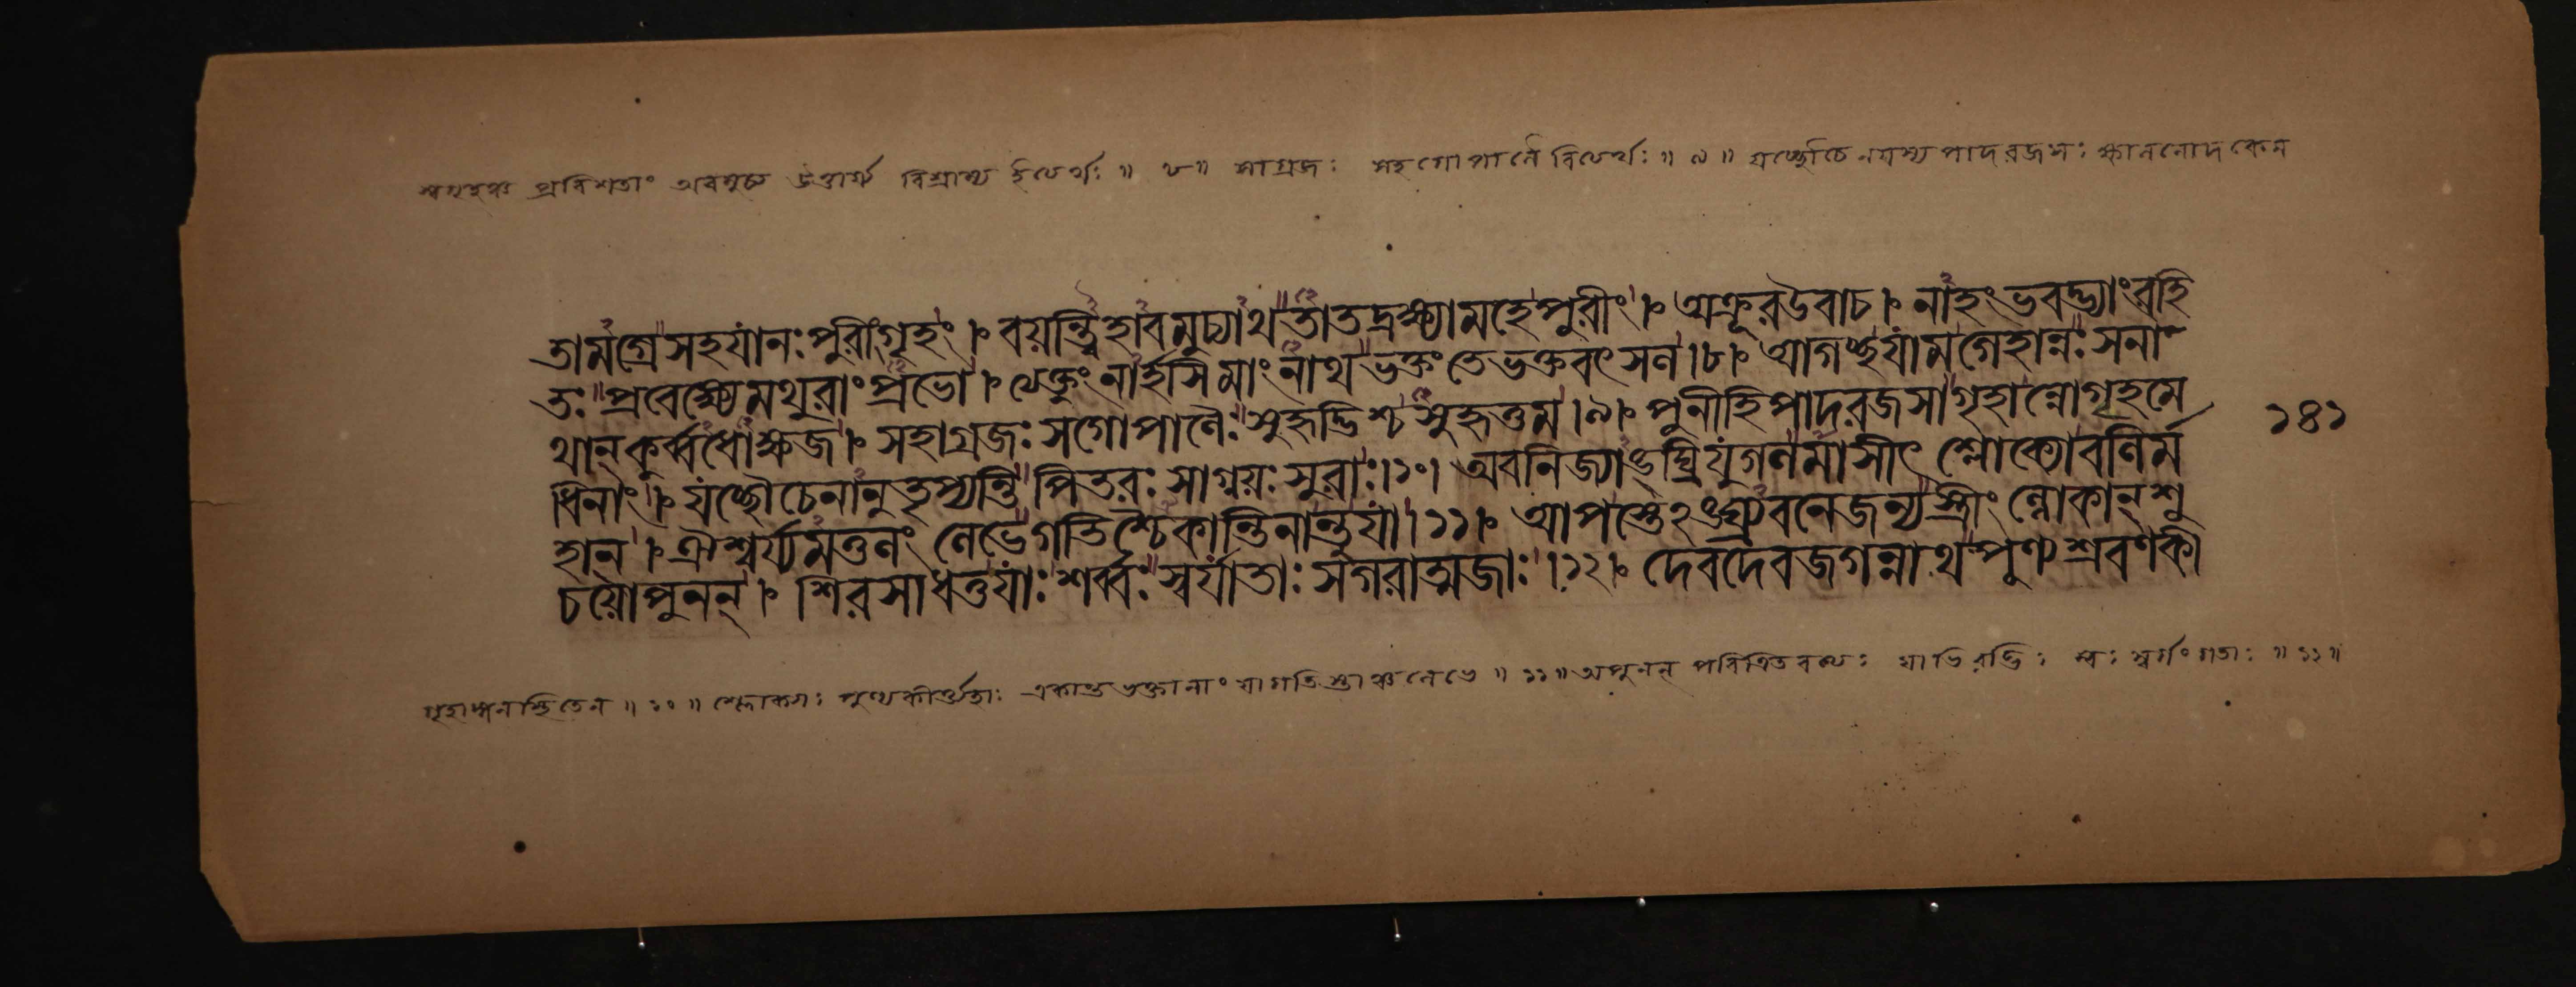 স্বগৃহঞ্চ প্রবিশতাং অবমুচ্য উত্তীর্য্য বিশ্রাম্য ইত্যর্থঃ ॥ ৮ ॥ সাগ্রজঃ সহগোপালৈরিত্যর্থঃ ॥ ৯ ॥ যচ্ছৌচেন যস্য পাদরজসঃ ক্ষালনোদকেন
তামগ্রেসহযানঃপুরীংগৃহং । বয়ন্ত্বিহাবমুচ্যাথতাতদ্রক্ষ্যামহেপুরীং । অক্রূরউবাচ । নাহংভবদ্ভ্যাংরহি
তঃপ্রবেক্ষ্যেমথুরাংপ্রভো । ত্যক্তুংনার্হসিমাংনাথভক্তংতেভক্তবৎসল ।৮। আগচ্ছযামগেহান্নঃসনা
থান্‌কুর্ব্বধোক্ষজ । সহাগ্রজঃসগোপালৈঃসুহৃদ্ভিশ্চসুহৃত্তম ।৯। পুনীহিপাদরজসাগৃহান্নোগৃহমে
ধিনাং । যচ্ছৌচেনানুতৃপ্যন্তিপিতরঃসাগ্নয়ঃসুরাঃ।১০। অবনিজ্যাঙ্ঘ্রিযুগলমাসীৎ শ্লোক্যোবলির্ম
হান্‌ । ঐশ্বর্য্যমতুলং লেভেগতিশ্চৈকান্তিনান্তুযা ।১১। আপস্তেঽঙ্ঘ্র্যবনেজন্যস্ত্রীংল্লোকান্‌শু
চয়োপুনন্‌ । শিরসাধত্তযাঃশর্ব্বঃস্বর্যাতাঃসগরাত্মজাঃ ।১২। দেবদেবজগন্নাথপুণ্যশ্রবণকী
১৪১
গৃহাঙ্গনাস্থিতেন ॥ ১০ ॥ শ্লোক্যঃ পুণ্যকীর্ত্ত্যহঃ একান্তভক্তানাং যাগতিস্তাঞ্চলেভে ॥ ১১ ॥ অপুনন্‌ পবিত্রিতবত্যঃ যাভিরদ্ভিঃ স্বঃ স্বর্গংগতাঃ ॥ ১২ ॥